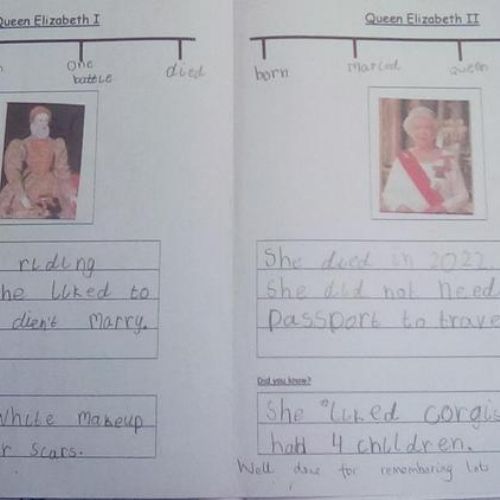 Queen Elizabeth I
one
battle
died
riding
he liked to
dien't marry.
White makeup
r scars.
Queen Elizabeth II
born
married
queen
She died in 2022.
She did not need
passport to trave
Did you know?
She liked corgis
had 4 children.
Well done for remembering lots